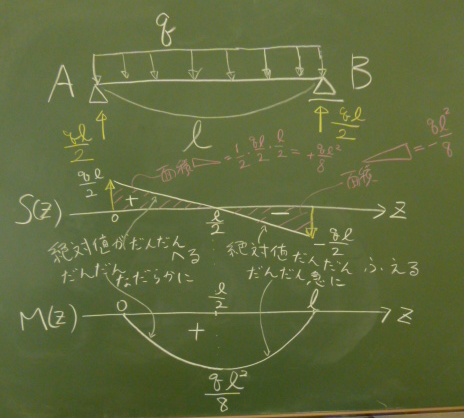 q
A
B
l
ql/2
ql/2
面積 = 1/2 · ql/2 · l/2 = + ql²/8
面積 = - ql²/8
ql/2
S(z)
+
-
0
l/2
z
-ql/2
絶対値がだんだんへる
だんだんなだらかに
絶対値だんだんふえる
だんだん急に
M(z)
0
l/2
l
z
+
ql²/8